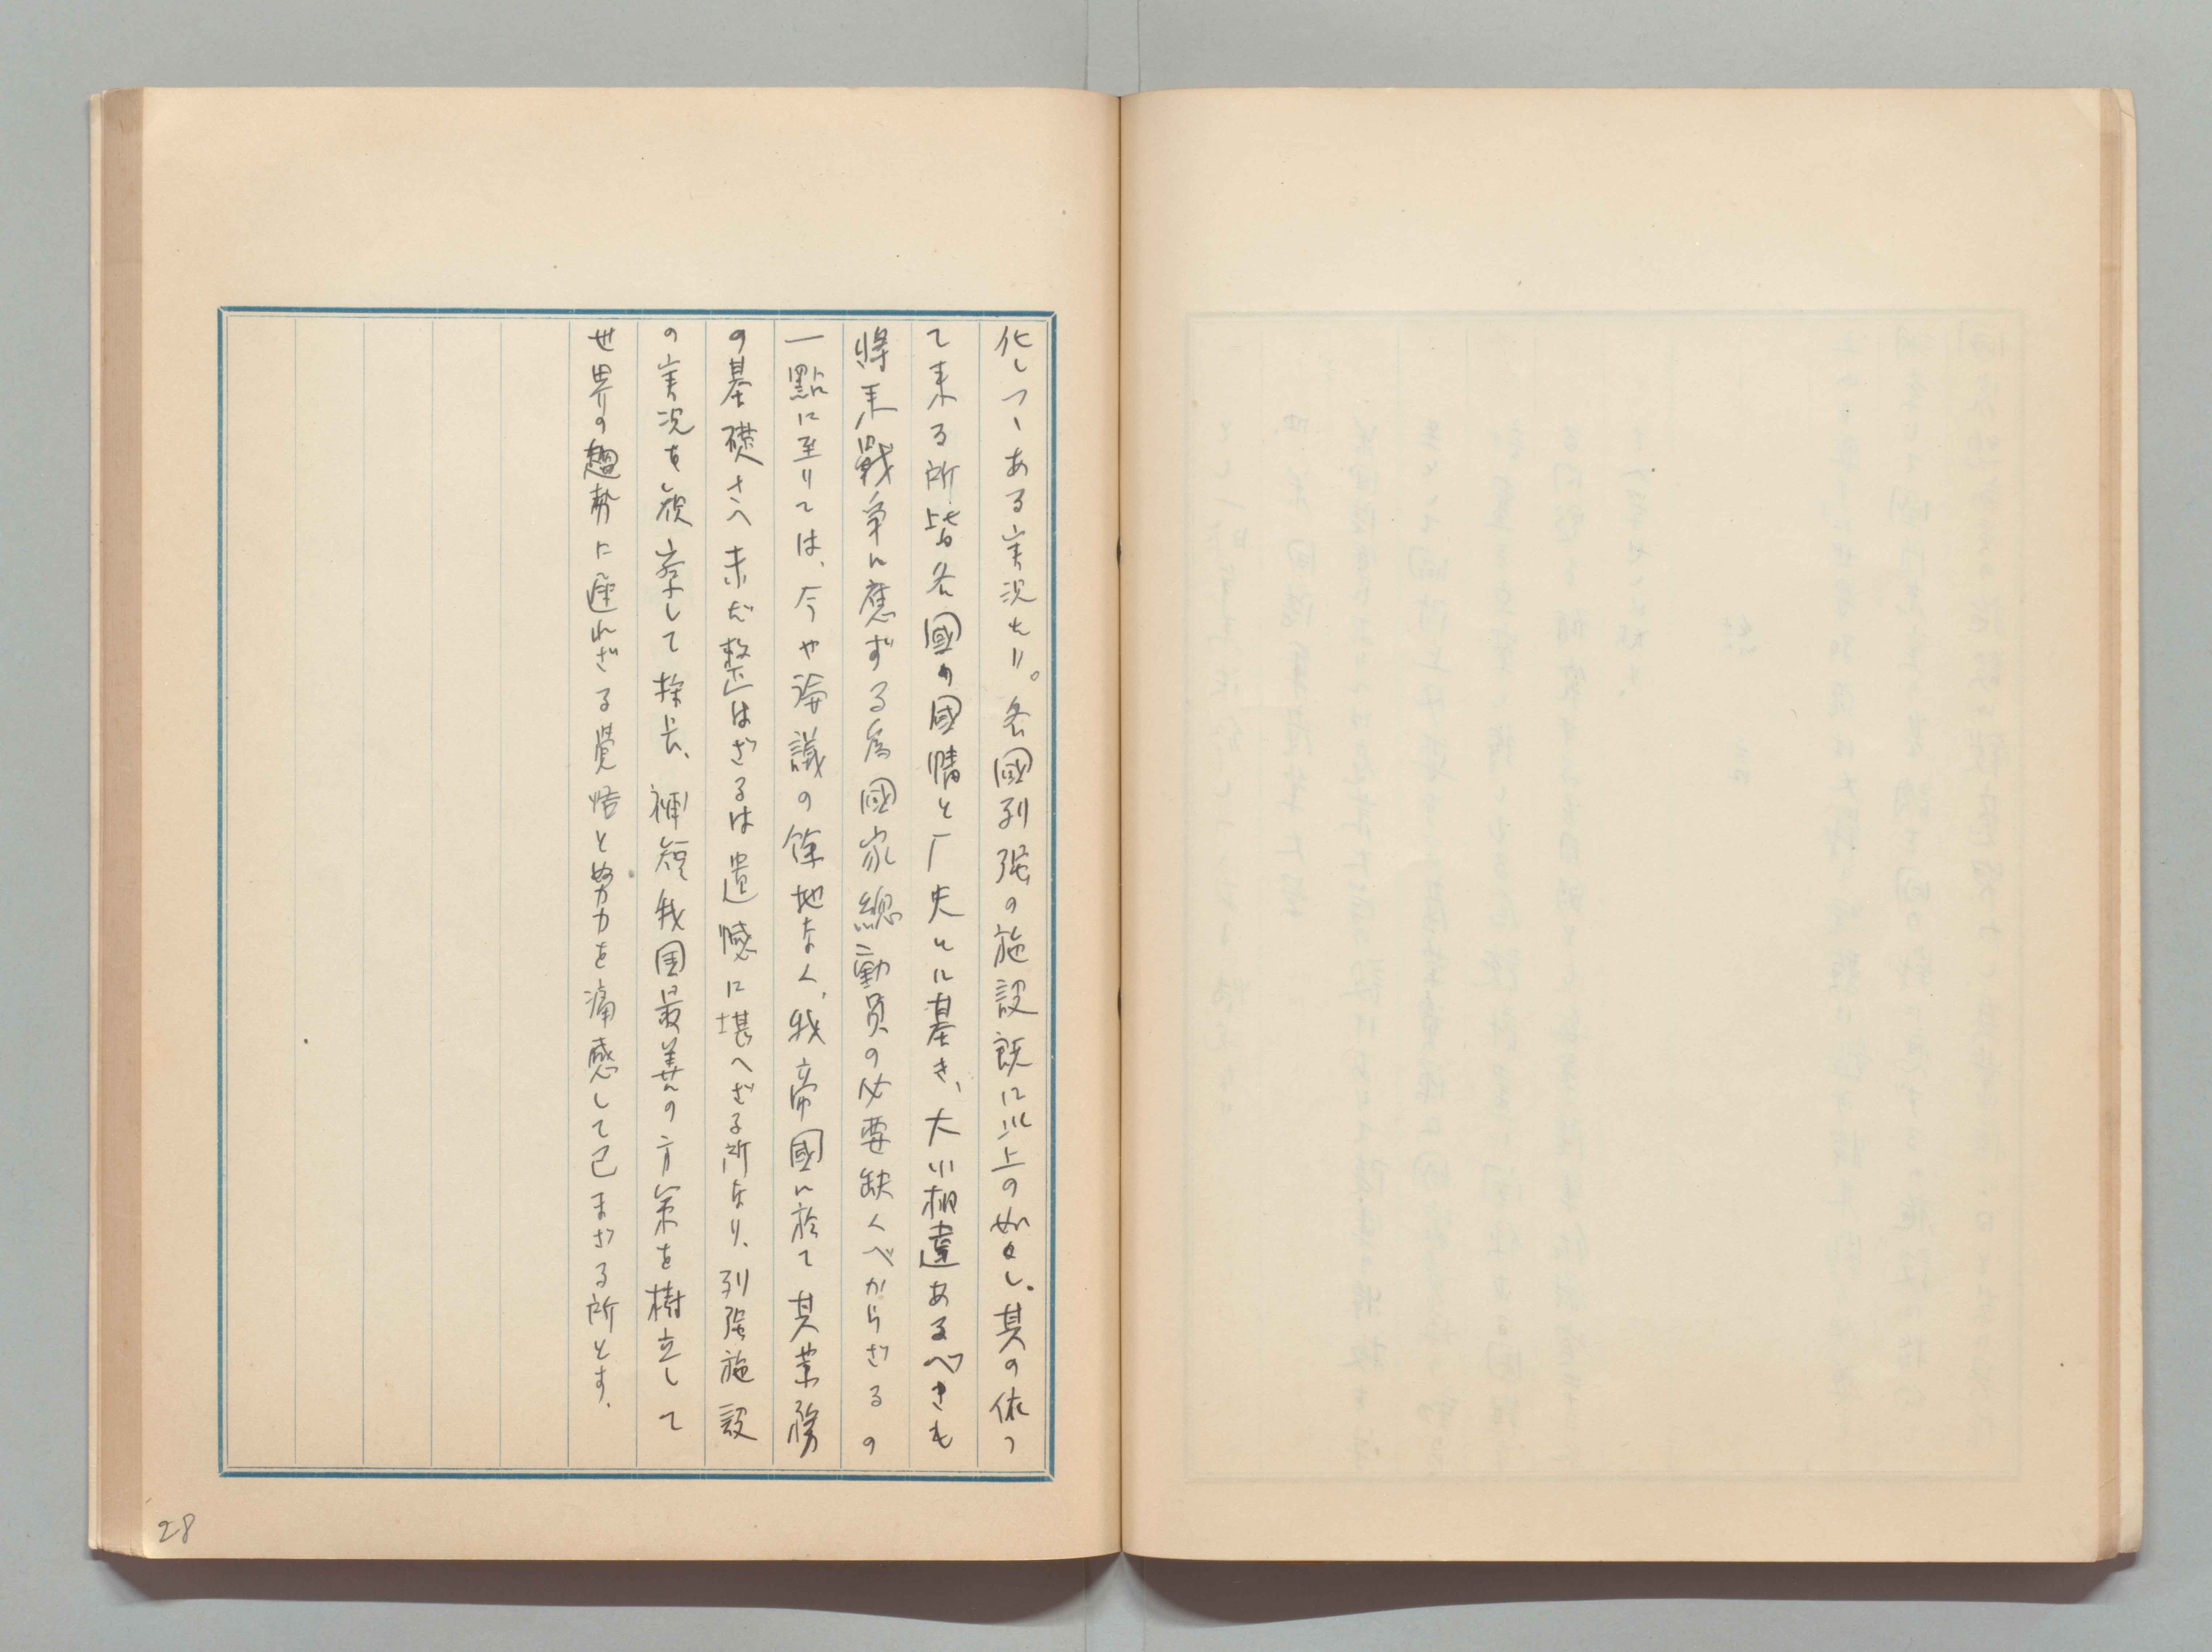 化しつゝある実況なり。各國列强の施設既に以上の如くし。其の依つ
て来る所皆各國の國情と厂史とに基き、大小相違あるべきも
將来戰争に應ずる為國家總動員の必要缺くべからざるの
一點に至りては、今や論議の餘地なく、我帝國に於て其業務
の基礎さへ未だ整はざるは遺憾に堪へざる所なり、列强施設
の実況を視察して採長、補短我国最善の方策を樹立して
世界の趨勢に遅れざる覚悟と努力を痛感して已まざる所とす.
28